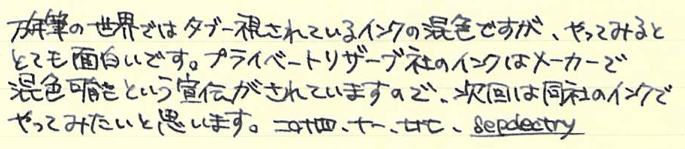 万年筆の世界ではタブー視されているインクの混色ですが、やってみると
とても面白いです。プライベートリザーブ社のインクはメーカーで
混色可能という宣伝がされていますので、次回は同社のインクで
やってみたいと思います。 二〇一四、十一、廿七、